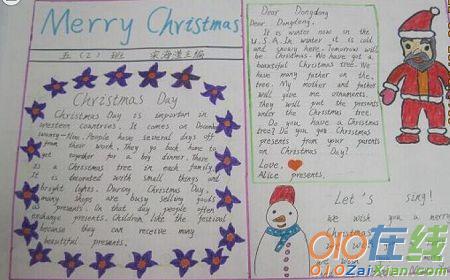 Merry Christmas
五(2)班 梁海滢主编
Christmas Day
Christmas Day is important in
western countries. It comes on December
twenty-five. People have several days off
from their work. They go back home to
get together for a big dinner. There
is a Christmas tree in each family.
It is decorated with small things and
bright lights. During Christmas Day,
many shops are busy selling goods
as presents. On that day people often
exchange presents. Children like the festival
because they can receive many
beautiful presents.
Dear Dongdong
Dear Dingding,
It is winter now in the
U.S.A. In winter it is cold
and snowy here. Tomorrow will
be Christmas. We have got a
beautiful Christmas tree. We
have many father on the
tree. My mother and father
will give me ornaments.
they will put the presents
under the Christmas tree.
Do you have a Christmas
tree? Do you get Christmas
presents from your parents
on Christmas Day?
Love,
Alice presents.
Let's sing!
we wish you a merry
Christmas
we wish
we wish
010在线
010ZaiXian.com